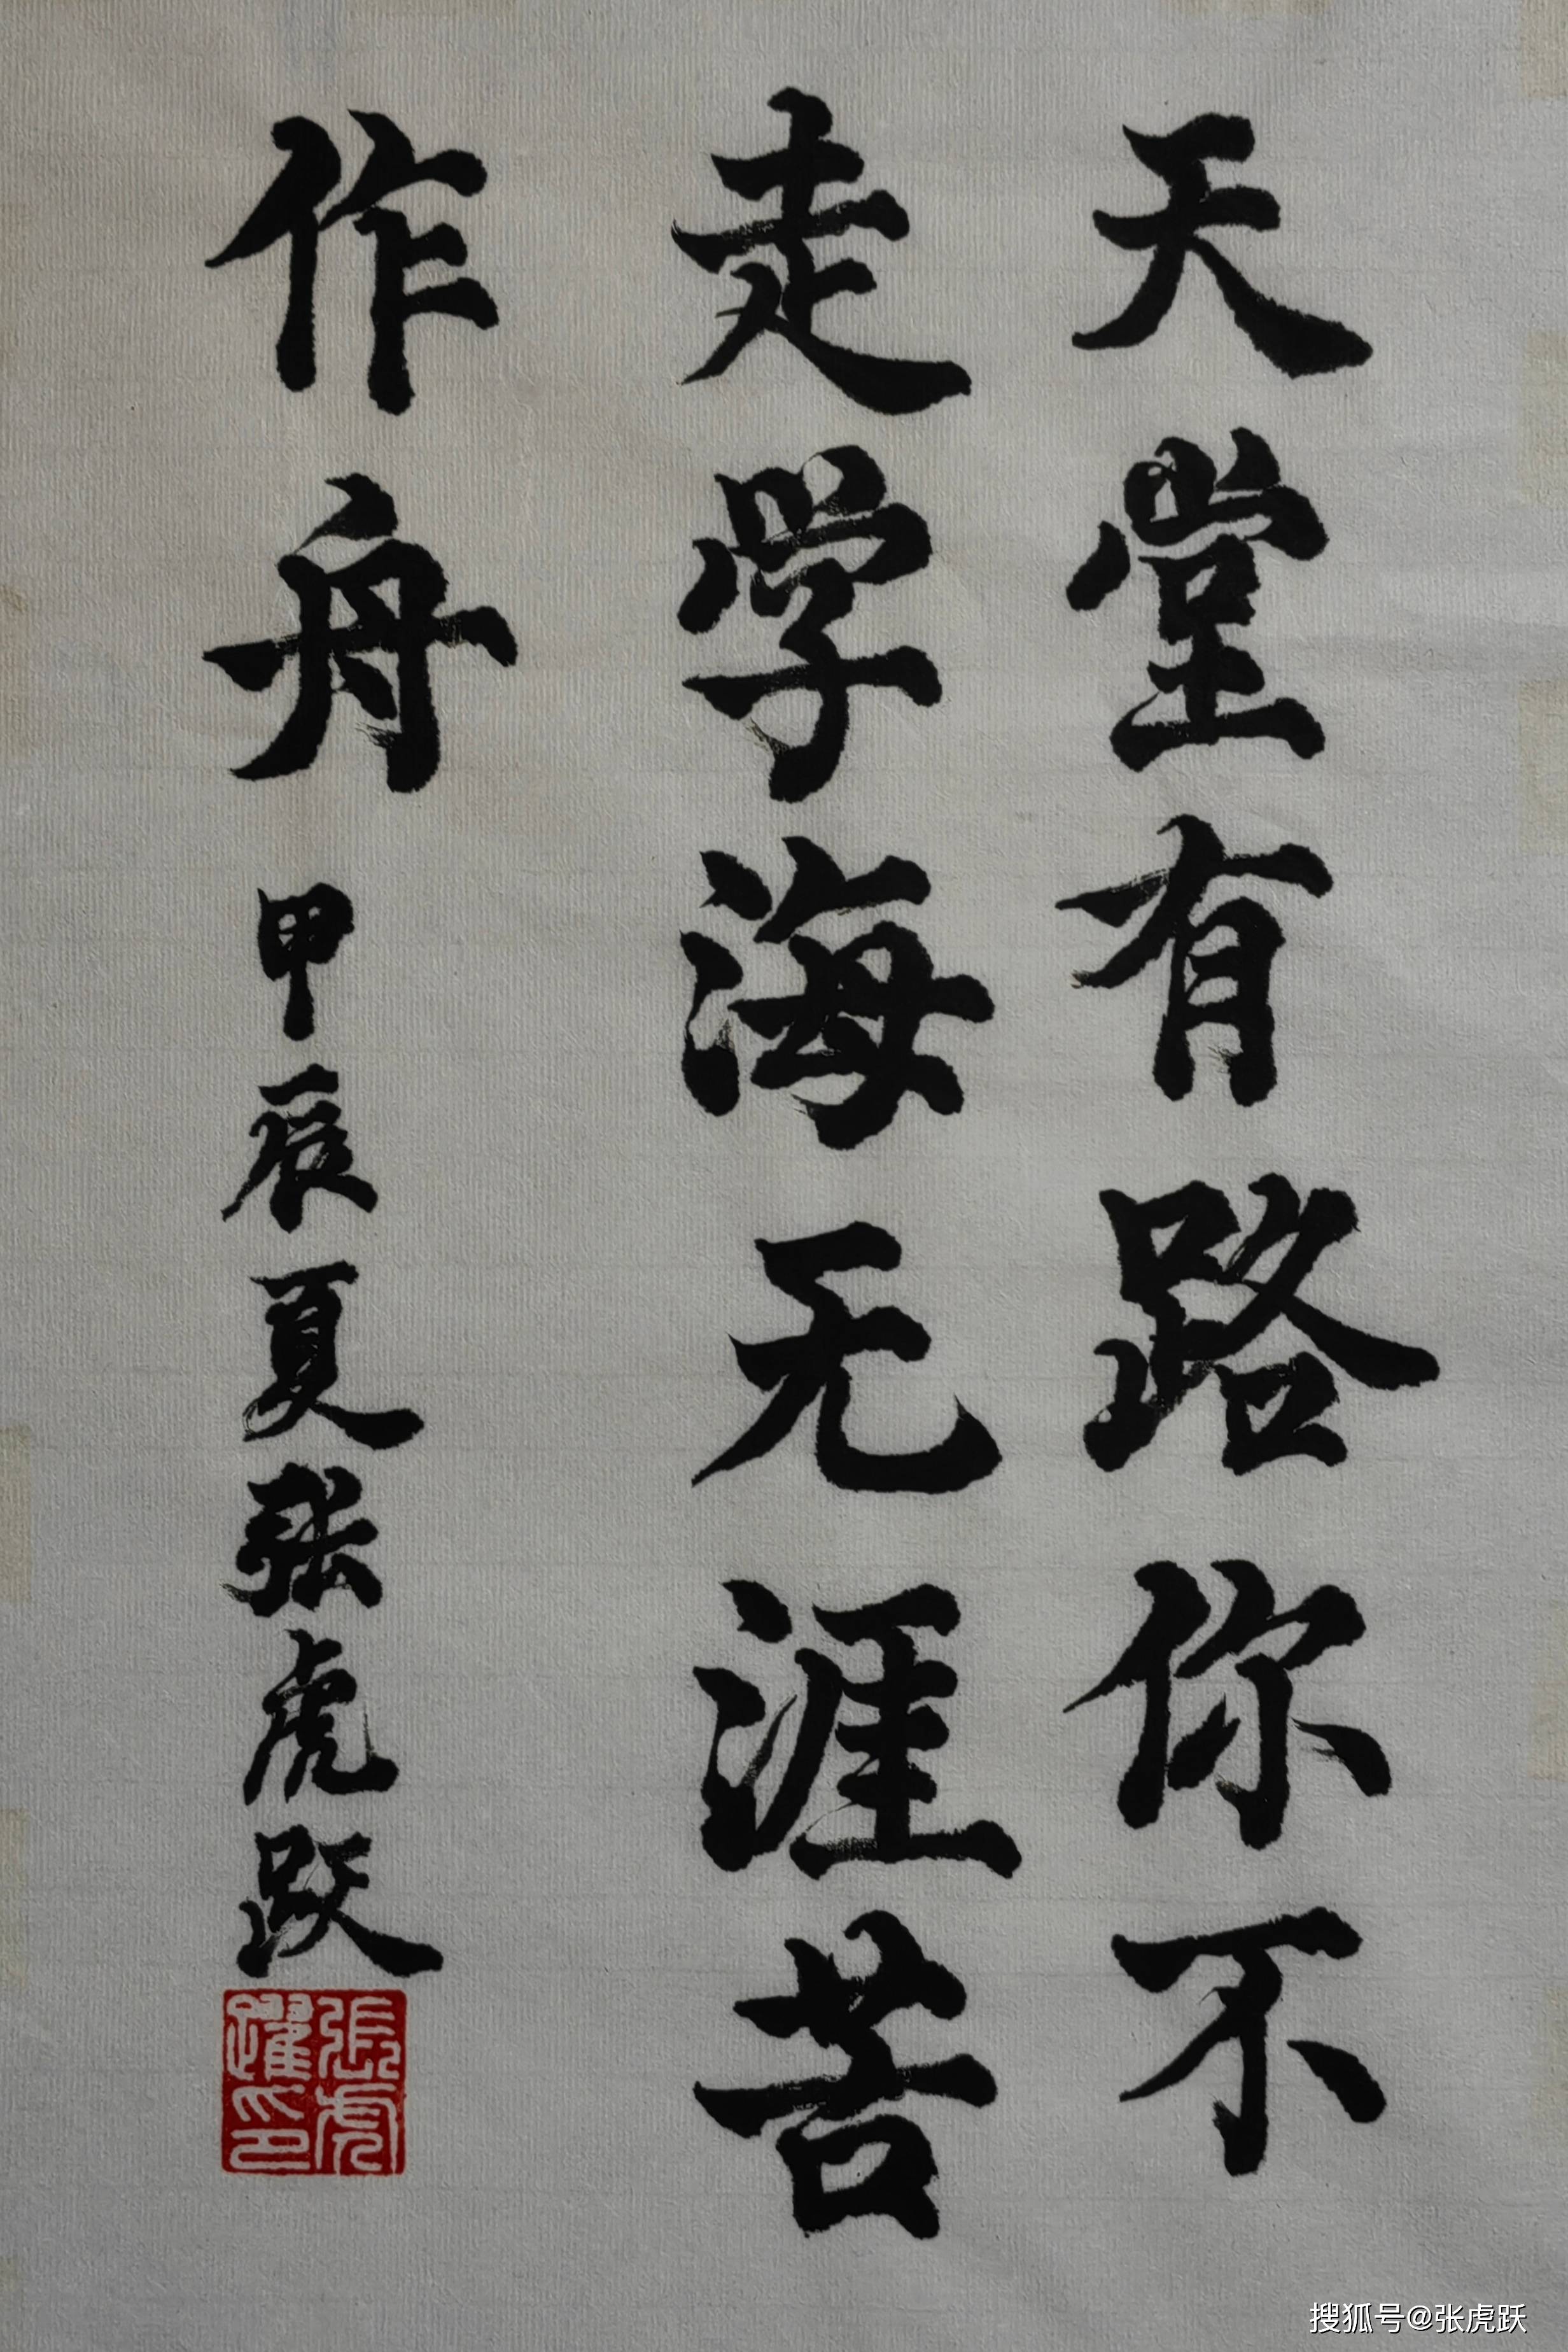 天堂有路你不
走学海无涯苦
作舟 甲辰夏张虎跃
張虎躍印
搜狐号@张虎跃